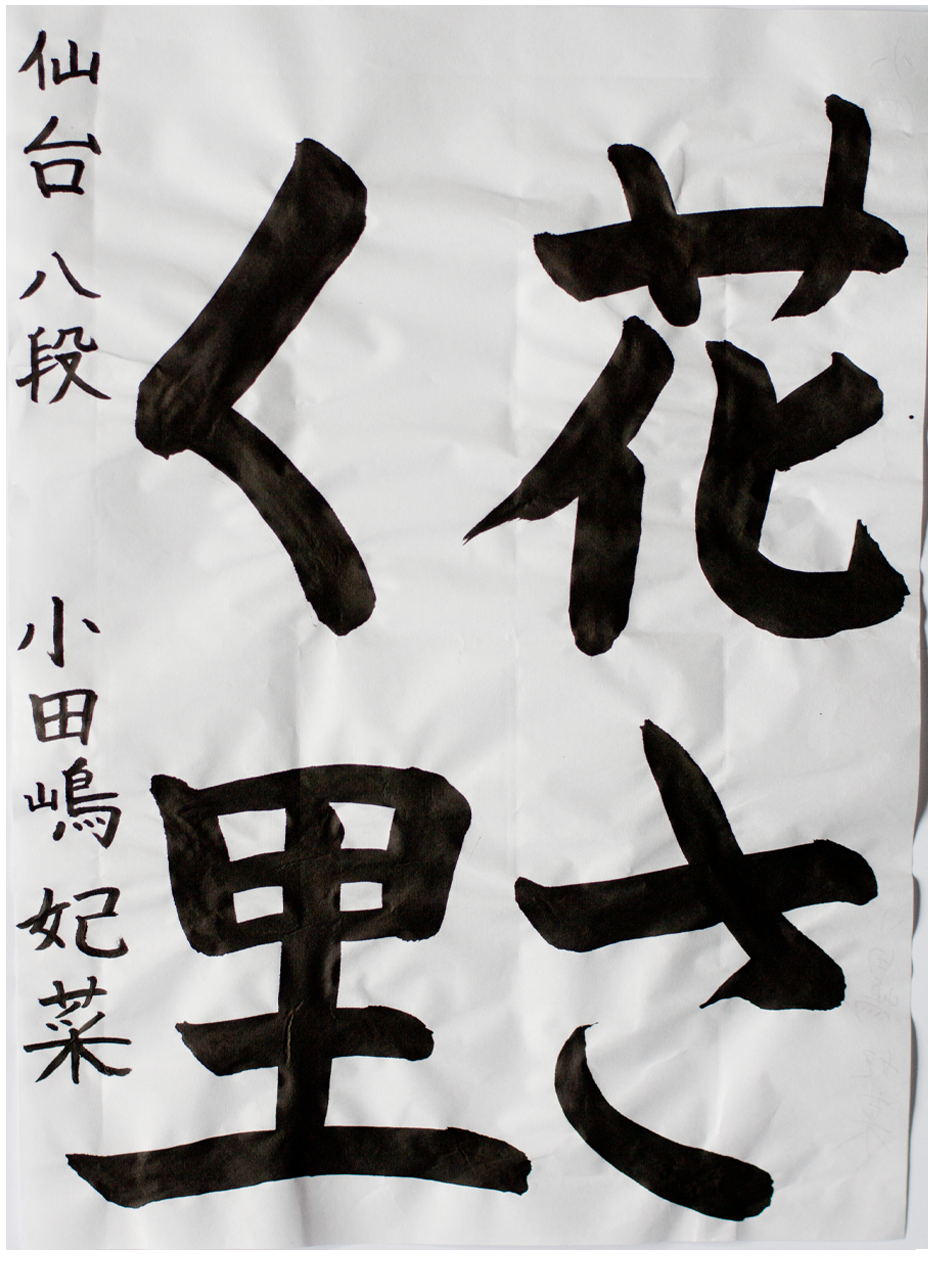 花さ
く里
仙台 八段 小田嶋 妃菜